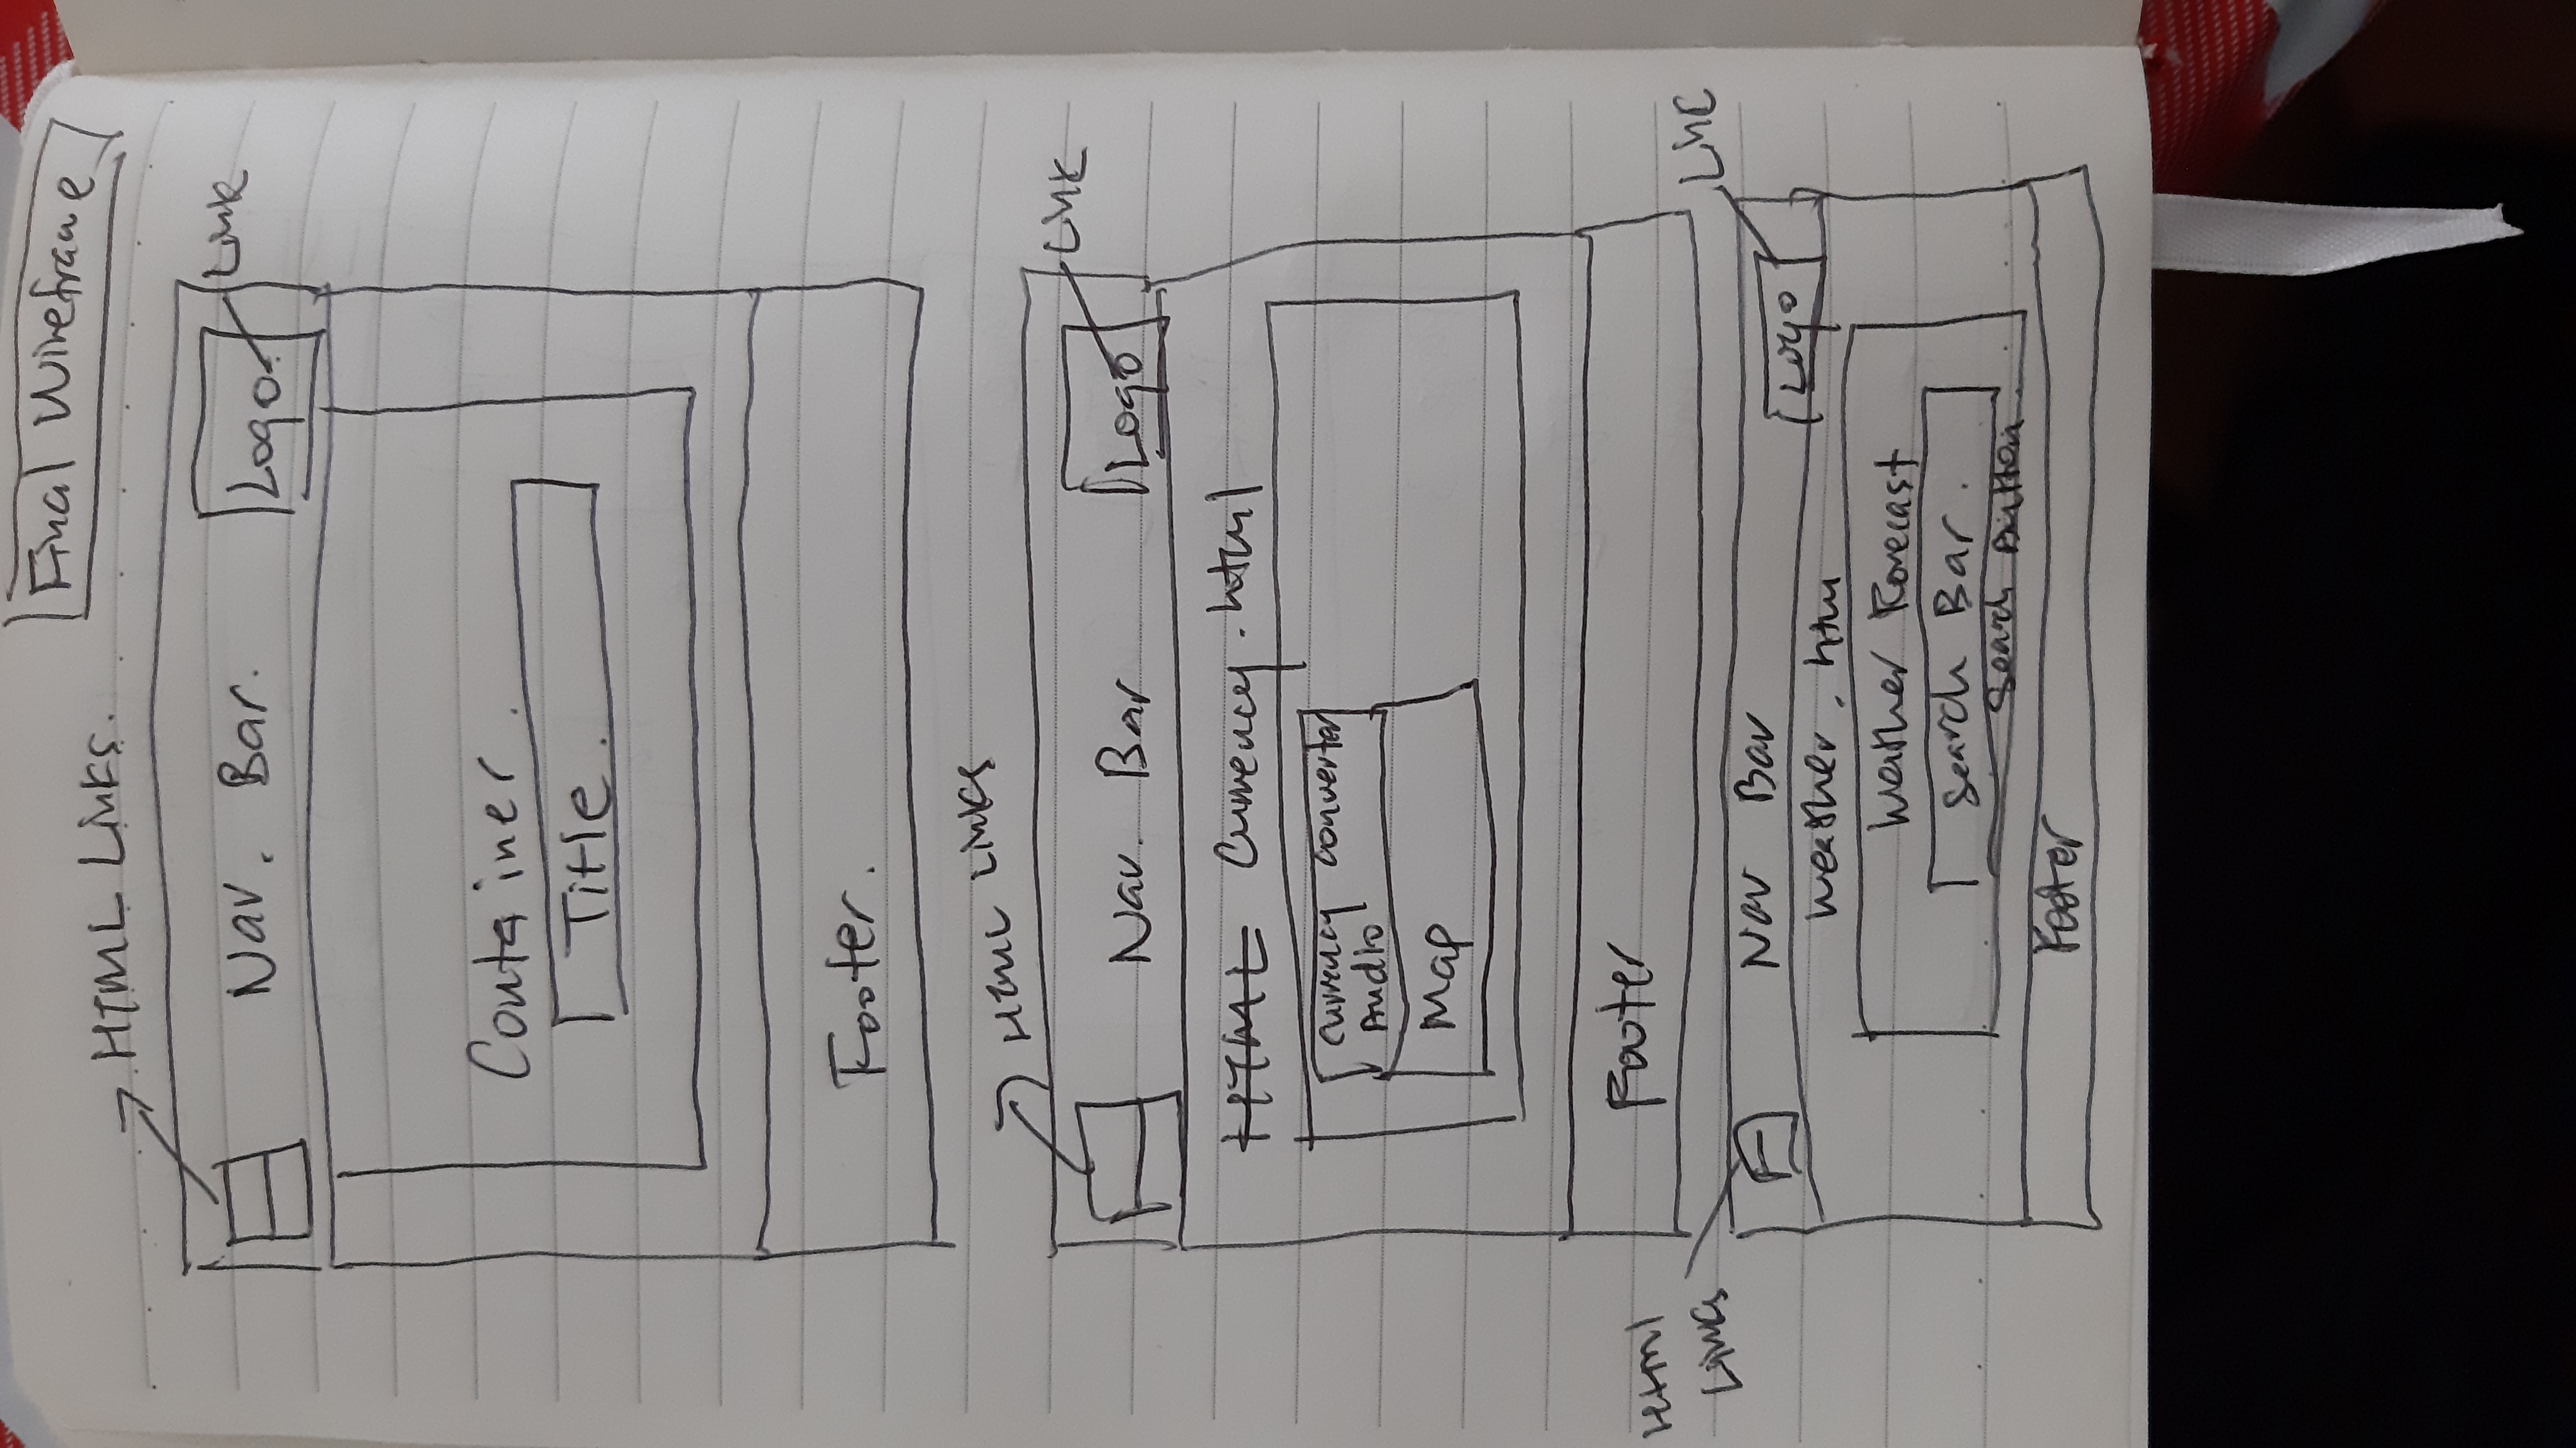 Final Wireframe
HTML Links.
Nav. Bar.
Logo.
Link
Container.
Title.
Footer.
HTML Links
Link
Nav. Bar
Logo
HTML Currency.html
currency converter
Audio
Map
Footer
Html
Links
Link
Nav Bar
Logo
Weather.htm
Weather Forecast
Search Bar.
Search Button
Footer